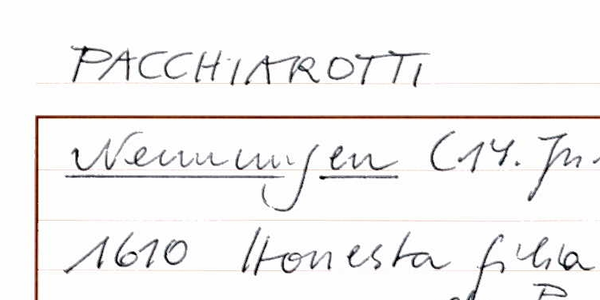 PACCHIAROTTI
Nenningen (14. Jh.
1610 Honesta filia